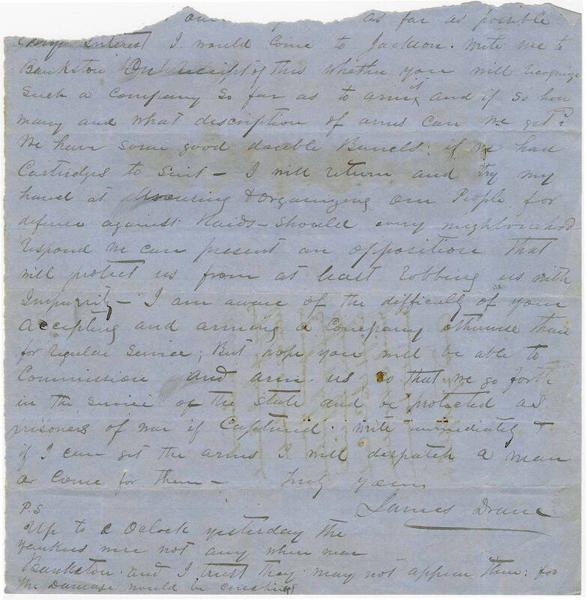 our as far as possible
Interest I would come to Jackson. Write me to
Bankston On receipt of this whether you will recognize
such a Company so far as to arm it, and if so how
many and what description of arms can we get?
We have some good double Barrels. if we had
Cartridges to suit - I will return and try my
hand at arousing & organizing our People for
defence against Raids - should every neighbourhood
respond we can present an opposition that
will protect us from at least robbing us with
Impunity - I am aware of the difficulty of your
accepting and arming a Company otherwise than
for regular Service, But hope you will be able to
Commission and arm us so that we go forth
in the service of the State and be protected as
prisoners of war if Captured. Write immediately &
if I can get the arms I will despatch a man
or come for them - Truly yours
James Drane
P.S
Up to 2 Oclock yesterday the
Yankees were not any where near
Bankston and I trust they may not appear there: for
the Damage would be